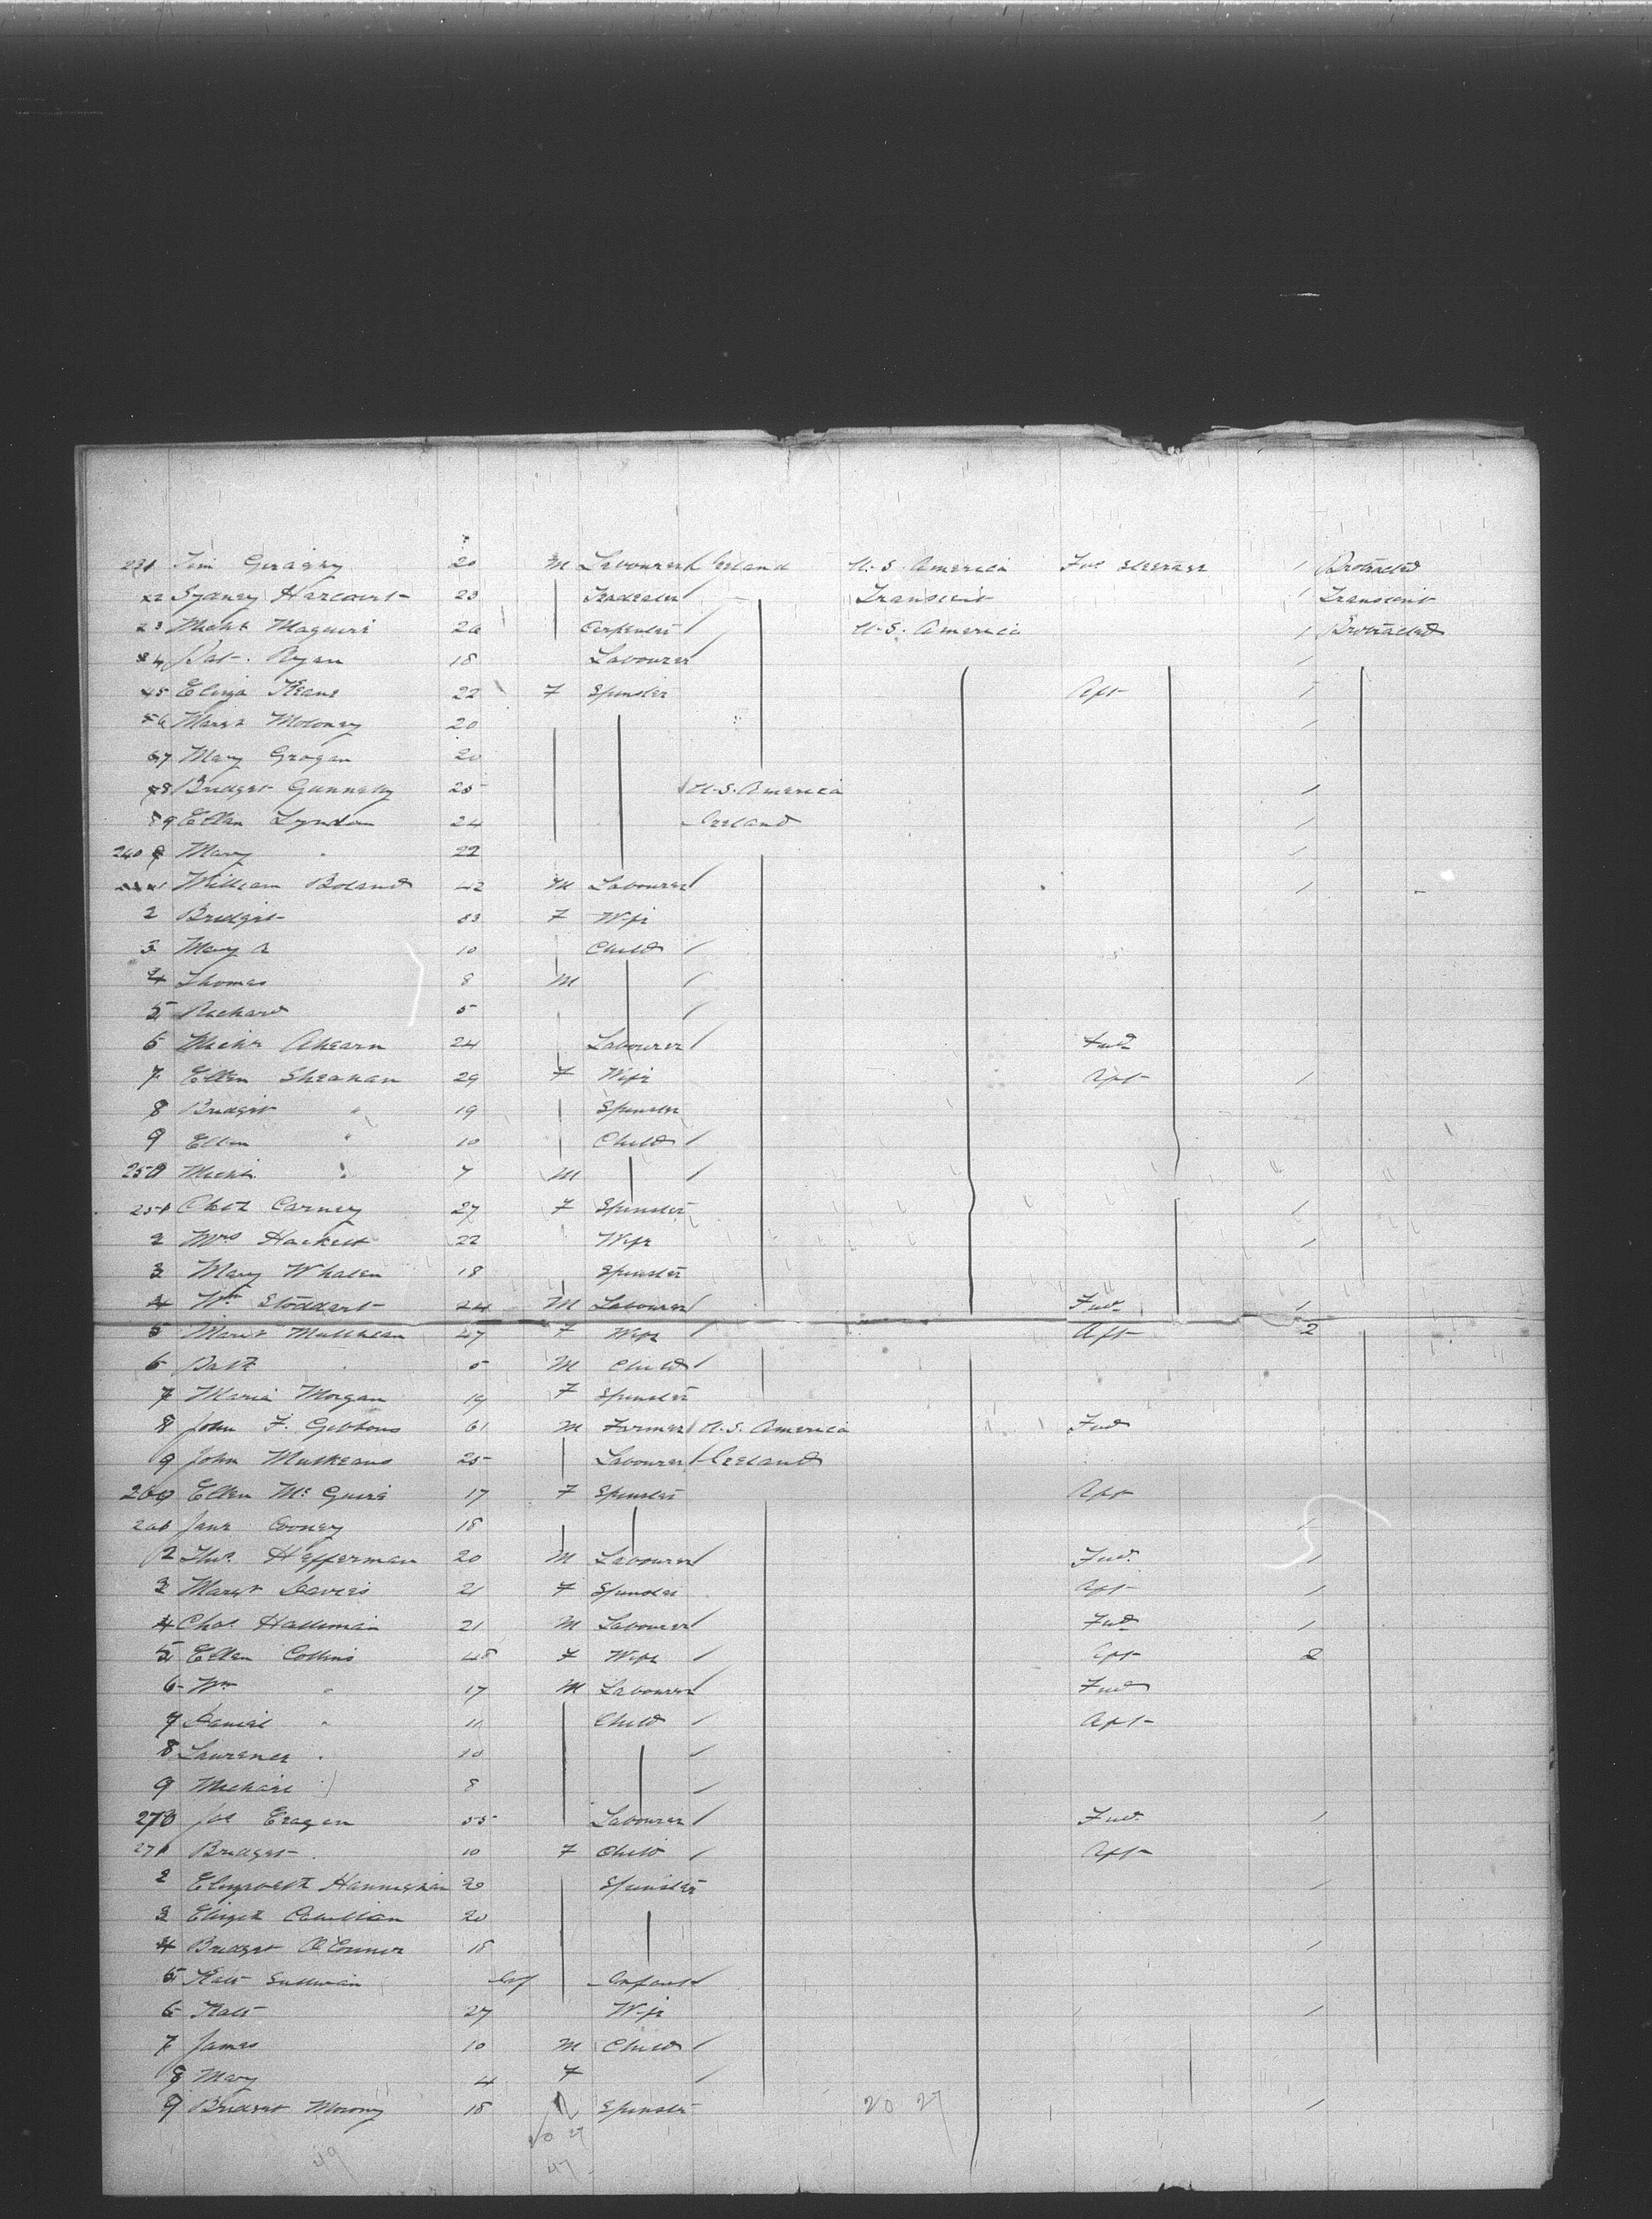 231 Tim Geraghy 20 M Labourer Ireland U.S. America Fwd Steerage 1 Protracted
Sydney Harcourt 23 Transient 1 Transient
Michl Maguire 26 Carpenter U.S. America 1 Protracted
4 Pat. Ryan 18 Labourer
5 Eliza Keane 22 F Spinster Aft 1
6 Margt Moloney 20
7 Mary Grogan 20
8 Bridget Gunnelly 25 U.S. America
9 Ellen Lyndon 24 Ireland
240 Mary " 22
William Boland 42 M Labourer
2 Bridget 33 F Wife
3 Mary A 10 Child
4 Thomas 8 M
5 Richard 5
6 Michl Ahearn 24 Labourer Fwd
7 Ellen Sheahan 29 F Wife Aft 1
8 Bridget " 19 Spinster
9 Ellen " 10 Child
250 Michl " 7 M
251 Cath Carney 27 F Spinster 1
2 Mrs Hackett 22 Wife 1
3 Mary Whalen 18 Spinster
4 Wm Stoddart 24 M Labourer Fwd 1
5 Margt 27 F Wife Aft 2
6 Patk 5 M Child
7 Maria Morgan 19 F Spinster
8 John F. Gibbons 61 M Farmer U.S. America Fwd
9 John 25 Labourer Ireland
260 Ellen McGuire 17 F Spinster Aft
261 Jane Cooney 18
2 Thos. Hefferman 20 M Labourer Fwd. 1
3 Margt Davies 21 F Spinster Aft 1
4 Chas. 21 M Labourer Fwd 1
5 Ellen Collins 48 F Wife Aft 2
6 Wm " 17 M Labourer Fwd
7 Daniel " 11 Child Aft
8 Laurence " 10
9 Michael 8
270 Eragen 55 Labourer Fwd. 1
271 Bridget 10 F Child Aft
2 Elizabeth 20 Spinster
3 Elizth 20
4 Bridget O'Connor 18
5 Kate Sullivan Inf Infant
6 Kate 27 Wife
7 James 10 M Child
8 Mary 4 F
9 Bridget 18 Spinster 20 27
20 27
49 47